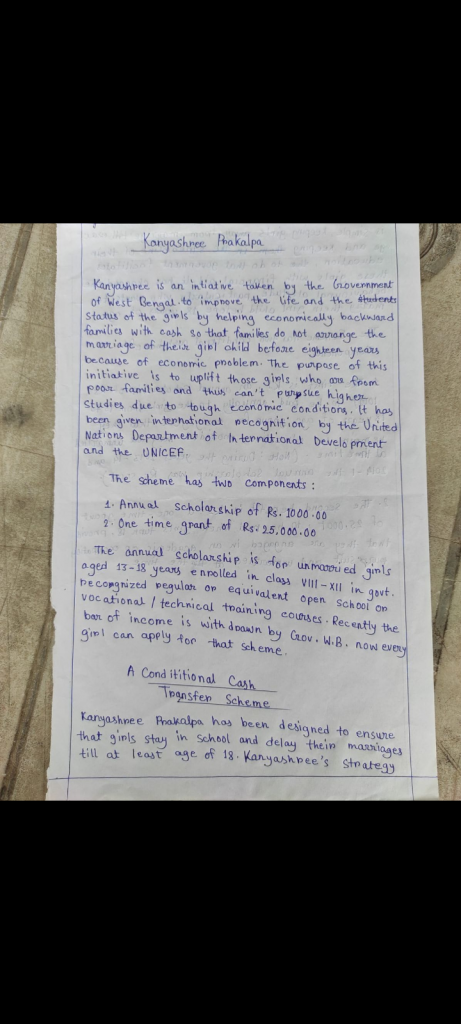 Kanyashree Prakalpa
Kanyashree is an intiative taken by the Government
of West Bengal to improve the life and the students
status of the girls by helping economically backward
families with cash so that families do not arrange the
marriage of their girl child before eighteen years
because of economic problem. The purpose of this
initiative is to uplift those girls who are from
poor families and thus can't purpsue higher
studies due to tough economic conditions. It has
been given international recognition by the United
Nations Department of International Development
and the UNICEF.
The scheme has two components :
1. Annual scholarship of Rs. 1000.00
2. One time grant of Rs. 25,000.00
The annual scholarship is for unmarried girls
aged 13-18 years enrolled in class VIII-XII in govt.
recongnized regular or equivalent open school or
vocational / technical training courses. Recently the
bar of income is with doawn by Gov. W.B. now every
girl can apply for that scheme.
A Condititional Cash
Transfer Scheme
Kanyashree Prakalpa has been designed to ensure
that girls stay in school and delay their marriages
till at least age of 18. Kanyashree's strategy